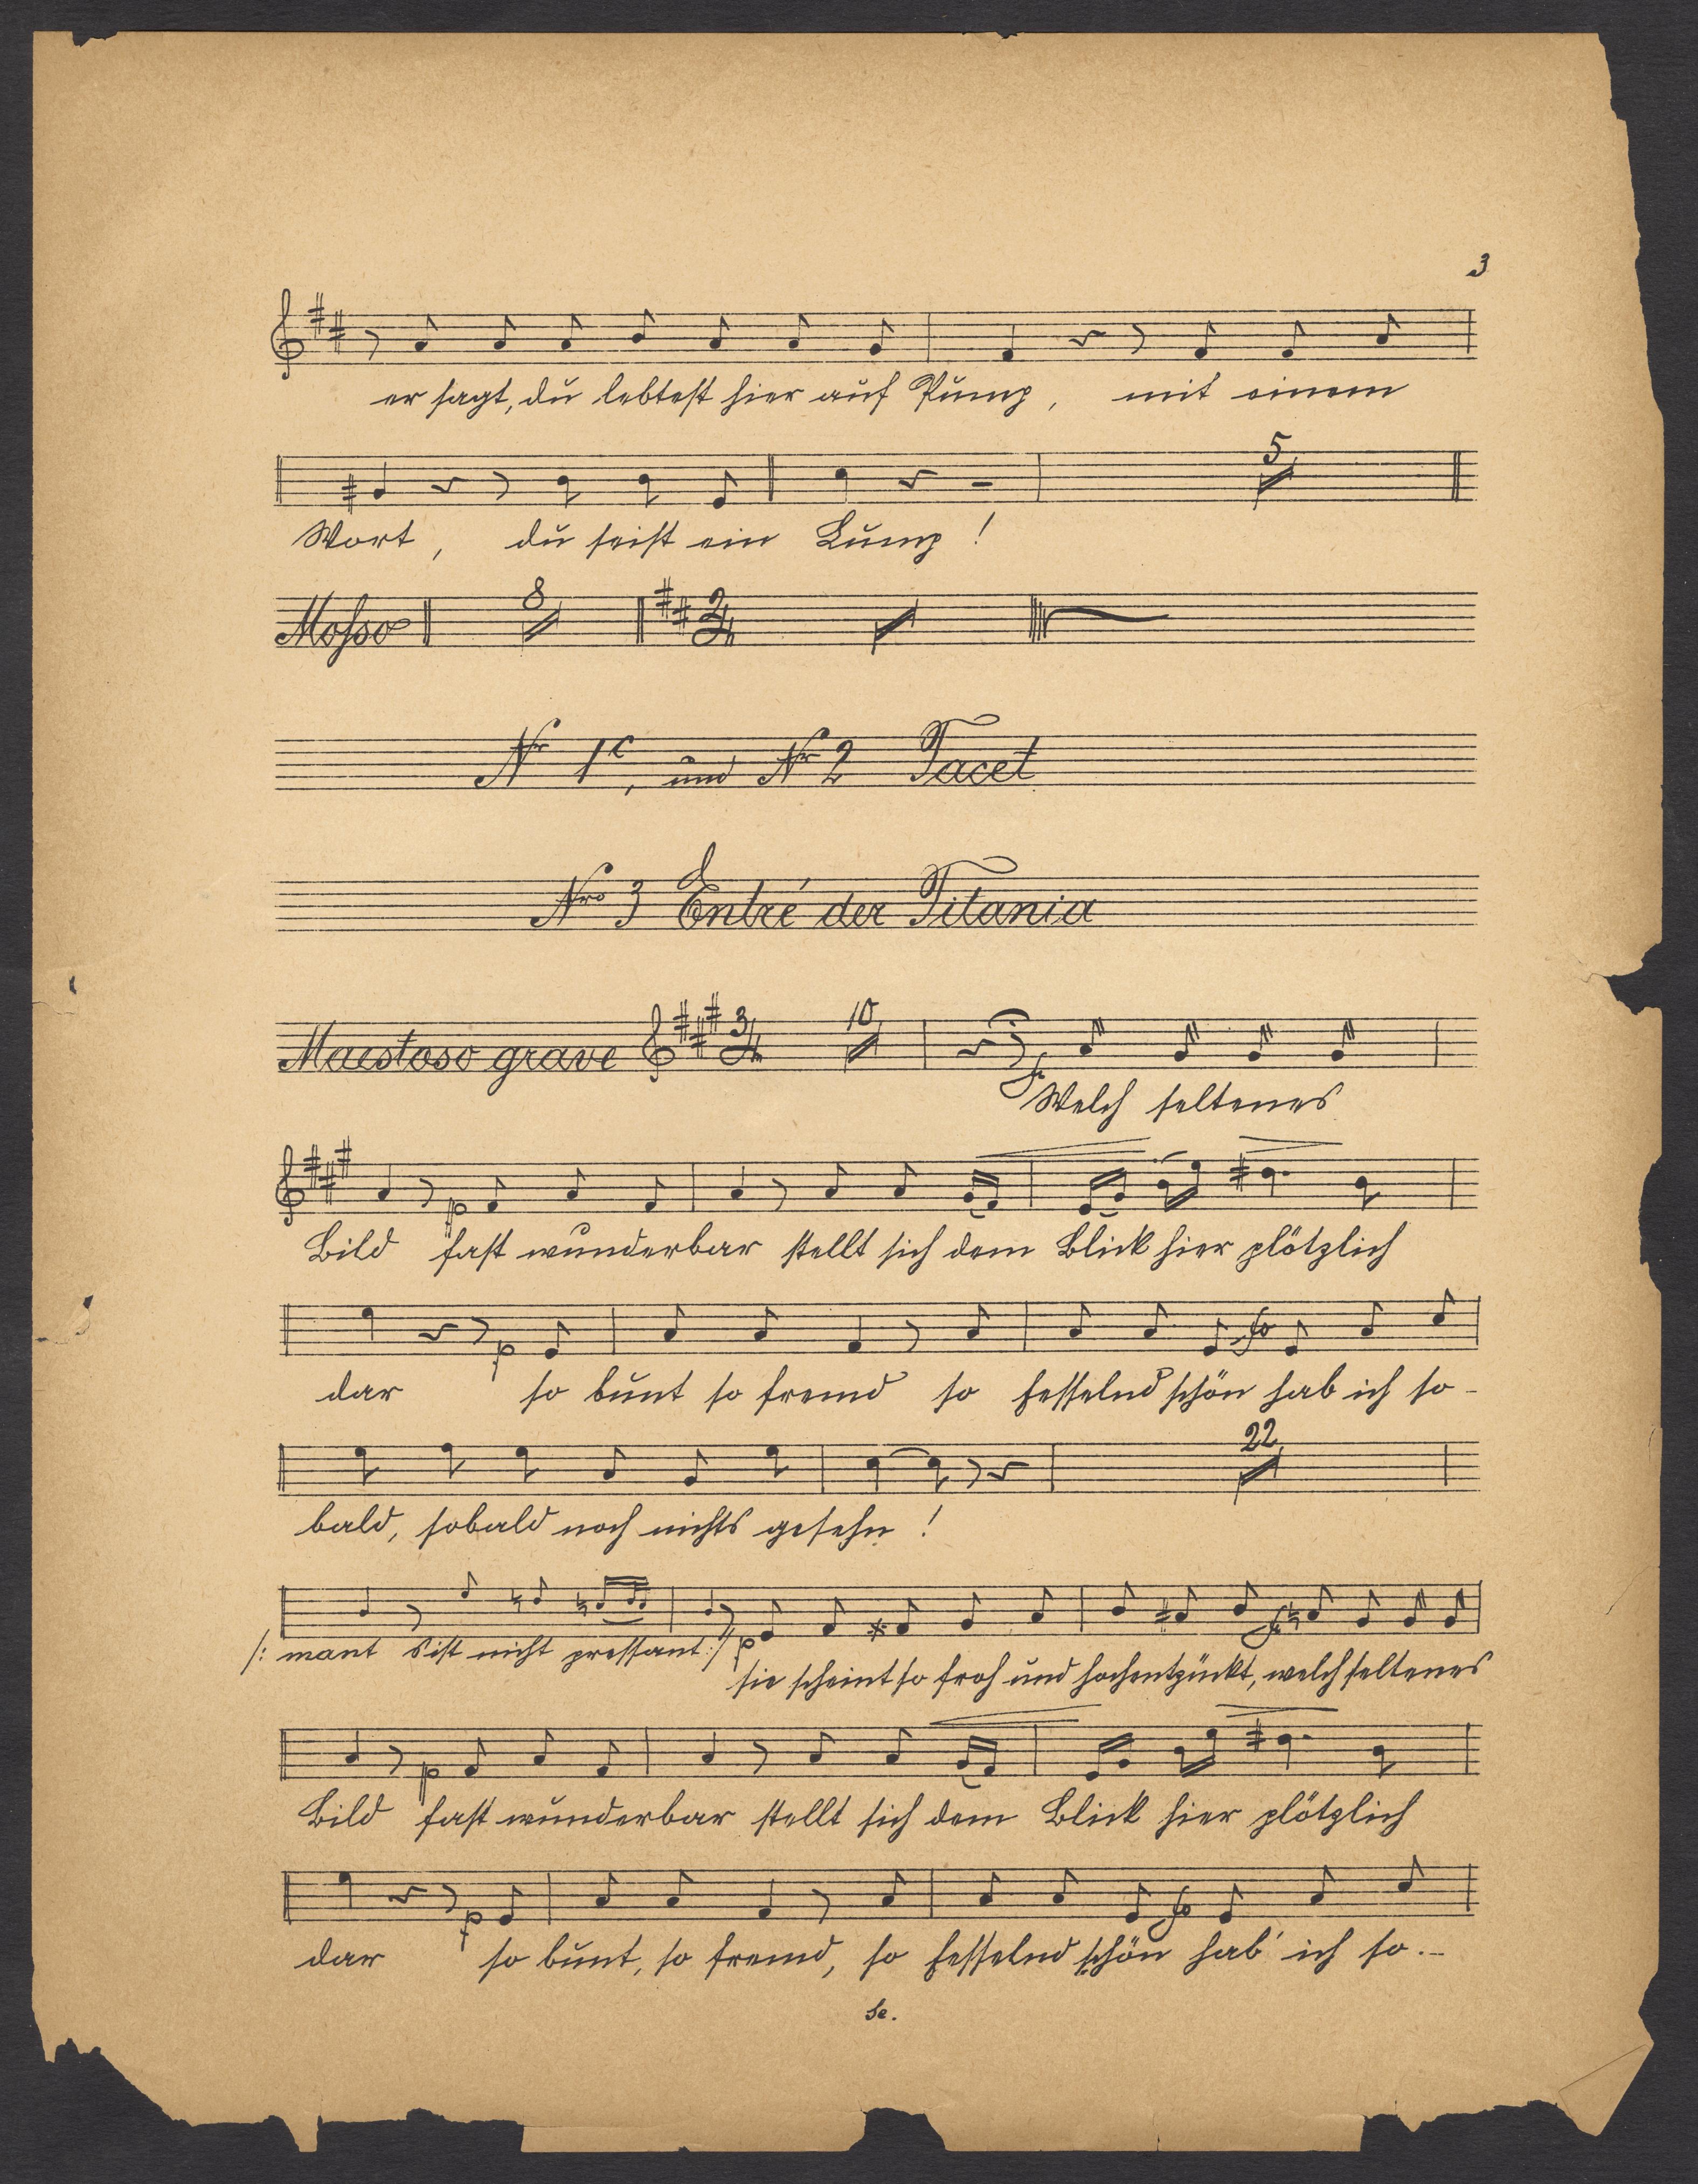 3
er sagt, du lebtest hier auf Pump, mit einem
5
Wort, du seist ein Lump!
Mosso 8 2/4
Nr 1c, und Nr 2 Tacet
Nro 3 Entré der Titania
Maestoso grave 3/4 10
Welch seltenes
Bild fast wunderbar stellt sich dem Blick hier plötzlich
dar so bunt so fremd so fesselnd schön hab ich so-
22
bald, sobald noch nichts gesehn!
/: mant s'ist nicht pressant :/ p
sie scheint so froh und hochentzückt, welch seltenes
Bild fast wunderbar stellt sich dem Blick hier plötzlich
dar so bunt, so fremd, so fesselnd schön hab' ich so.-